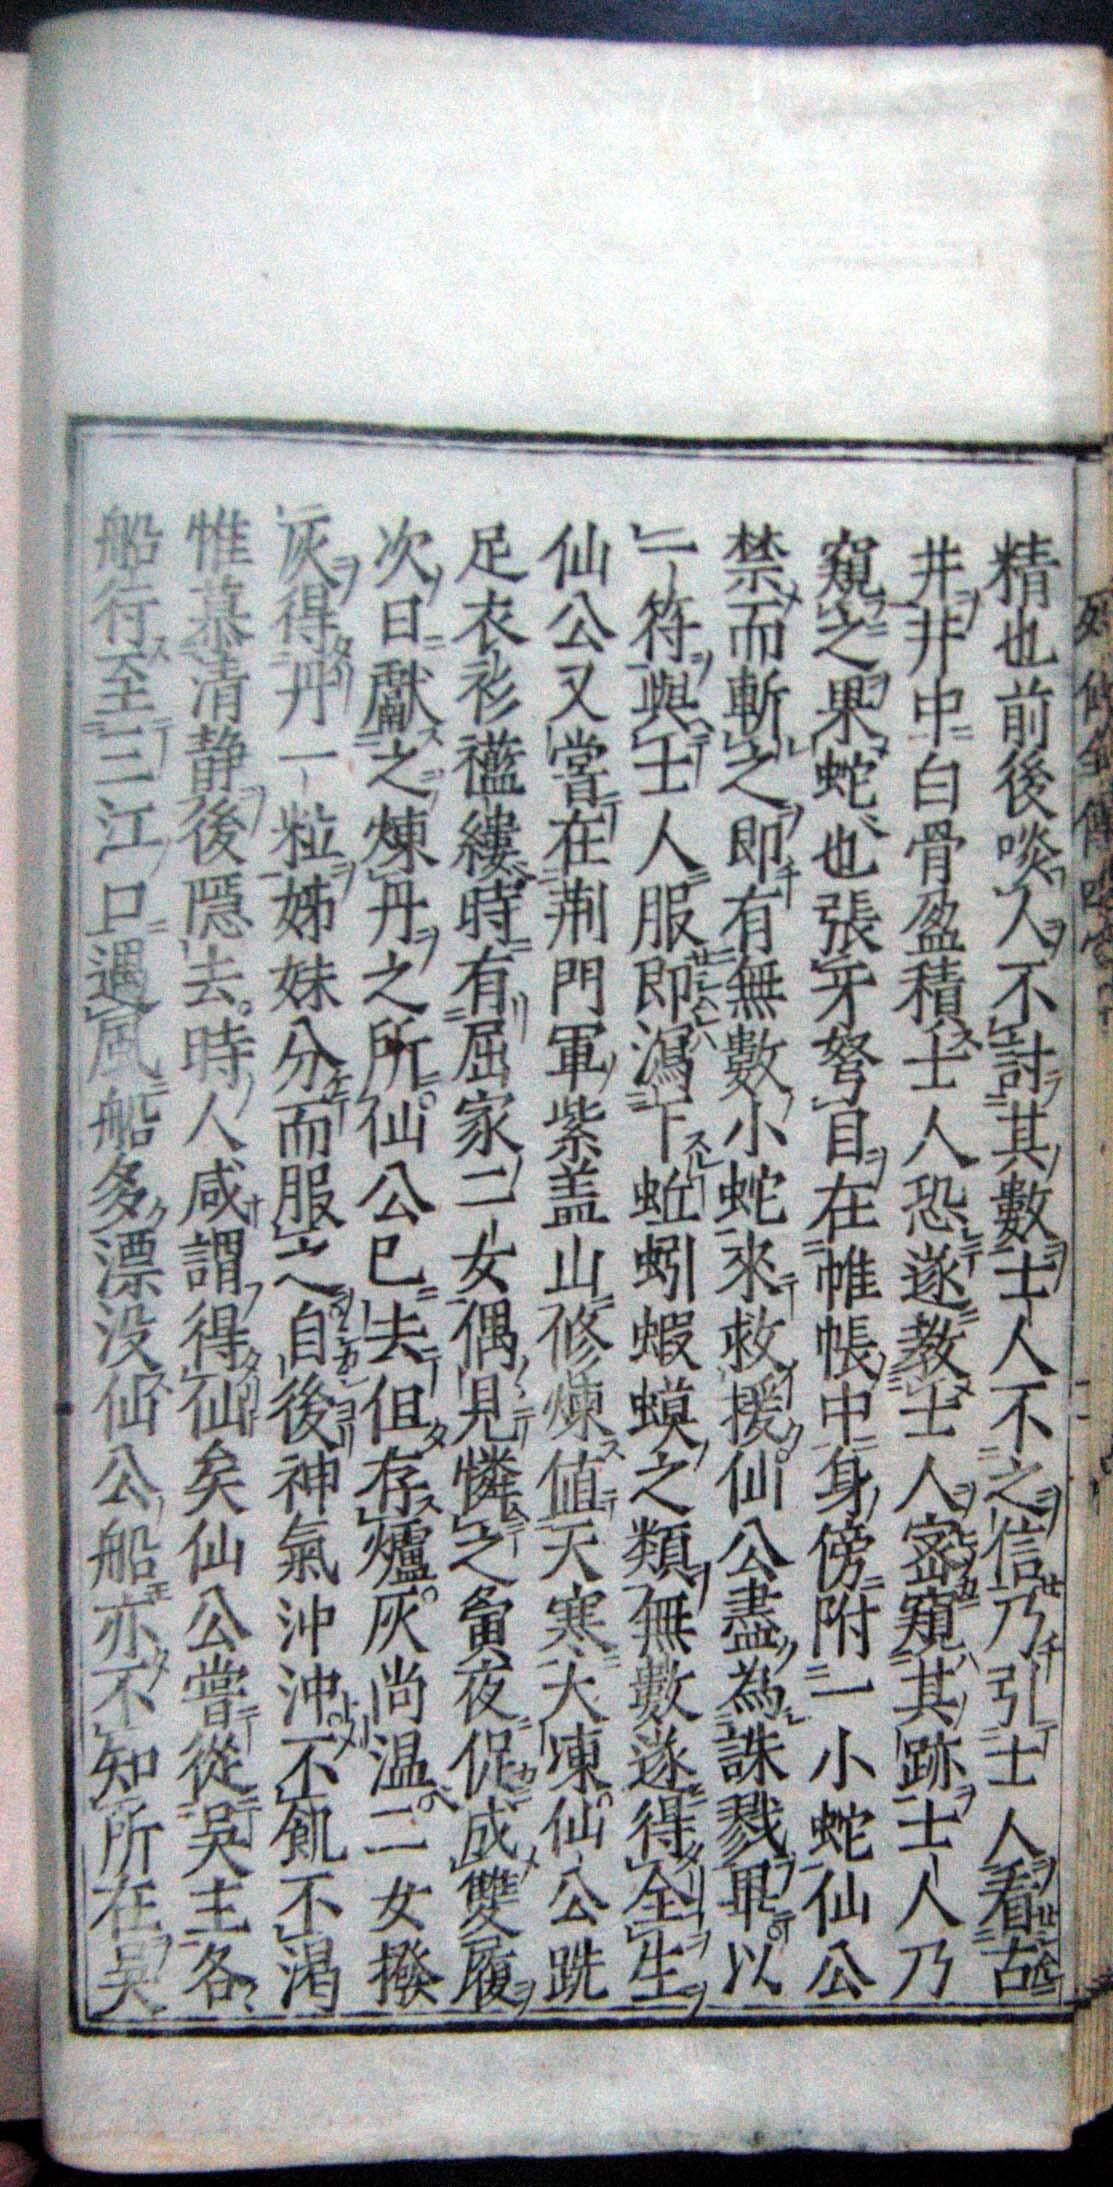 精也前後啖人不討其數士人不之信乃引士人看古
井井中白骨盈積士人恐遂教士人密窺其跡士人乃
窺之果蛇也張牙弩目在帷帳中身傍附一小蛇仙公
禁而斬之即有無數小蛇來救援仙公盡為誅戮畢以
一符與士人服即瀉下蚯蚓蝦蟆之類無數遂得全生
仙公又嘗在荆門軍紫盖山修煉值天寒大凍仙公跣
足衣衫襤縷時有屈家二女偶見憐之夤夜促成雙履
次日獻之煉丹之所仙公已去但存爐灰尚温二女撥
灰得丹一粒姊妹分而服之自後神氣沖沖不飢不渴
惟慕清静後隱去時人咸謂得仙矣仙公嘗從吳主各
船行至三江口遇風船多漂没仙公船亦不知所在吳